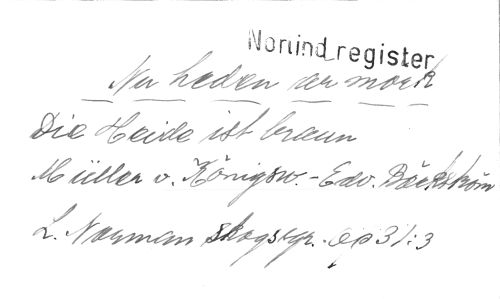 Nomind_register
Nu heden är mörk
Die Heide ist braun
Müller v. Königsw. - Edv. Bäckström
L. Norman Skogsgr. Op 31:3